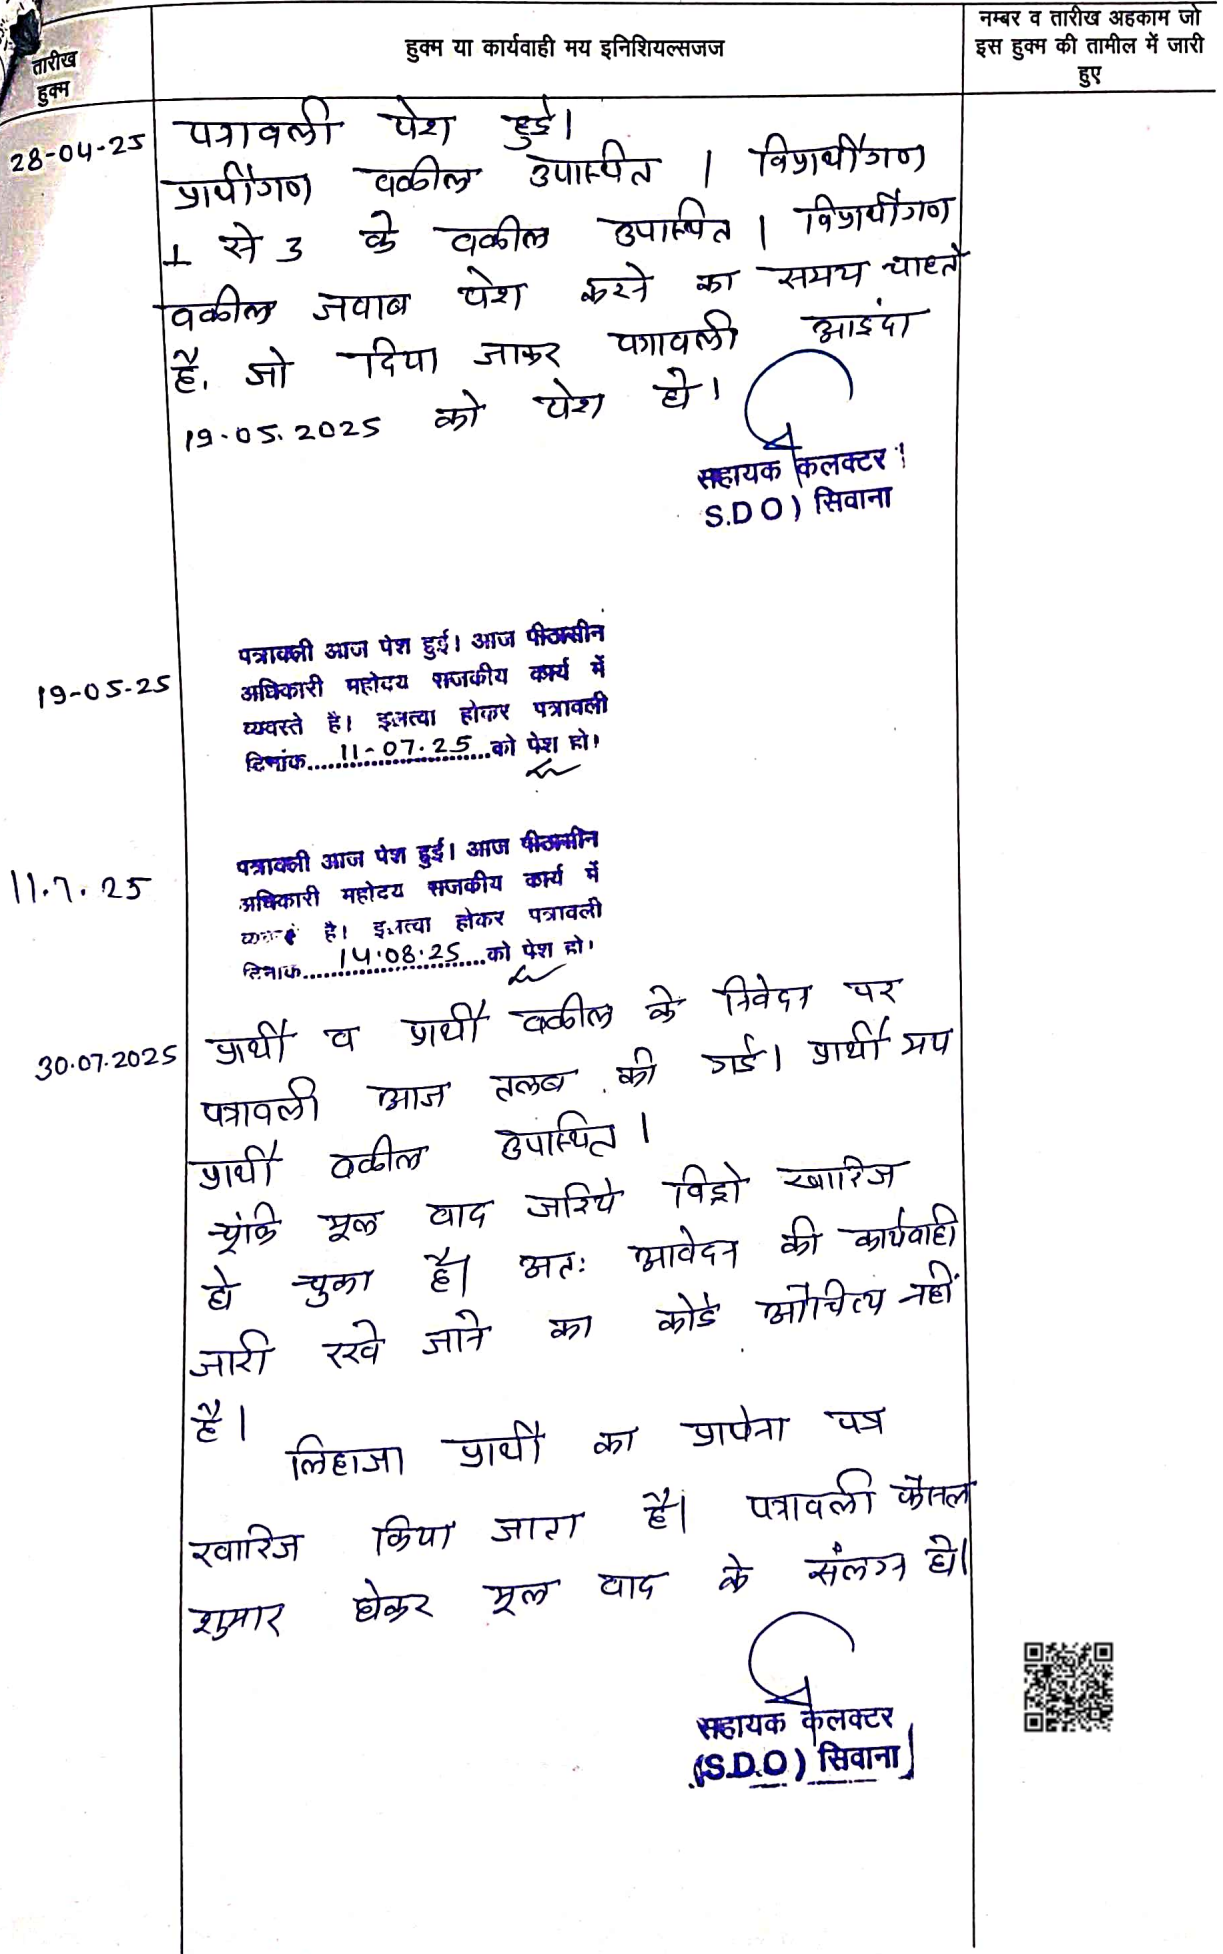 तारीख
हुक्म
हुक्म या कार्यवाही मय इनिशियल्सजज
नम्बर व तारीख अहकाम जो
इस हुक्म की तामील में जारी
हुए
28-04-25
पत्रावली पेश हुई।
प्रार्थीगण वकील उपस्थित । विप्रार्थीगण
1 से 3 के वकील उपस्थित । विप्रार्थीगण
वकील जवाब पेश करने का समय चाहते
है. जो दिया जाकर पत्रावली आइंदा
19.05.2025 को पेश हो।
सहायक कलक्टर
S.D O) सिवाना
19-05-25
पत्रावली आज पेश हुई। आज पीठासीन
अधिकारी महोदय राजकीय कार्य में
व्यवस्ते है। इजत्वा होकर पत्रावली
दिनांक......11-07.25......को पेश हो।
11.7.25
पत्रावली आज पेश हुई। आज पीठासीन
अधिकारी महोदय राजकीय कार्य में
है। इजत्वा होकर पत्रावली
दिनांक......14.08.25......को पेश हो।
30.07.2025
प्रार्थी व प्रार्थी वकील के निवेदन पर
पत्रावली आज तलब की गई। प्रार्थी मय
प्रार्थी वकील उपस्थित ।
चूंकि मूल वाद जरिये विड्रो खारिज
हो चुका है। अतः आवेदन की कार्यवाही
जारी रखे जाने का कोई औचित्य नहीं
है।
लिहाजा प्रार्थी का प्रार्थना पत्र
खारिज किया जाता है। पत्रावली फैसल
शुमार होकर मूल वाद के संलग्न हो।
सहायक कलक्टर
(S.D.O) सिवाना